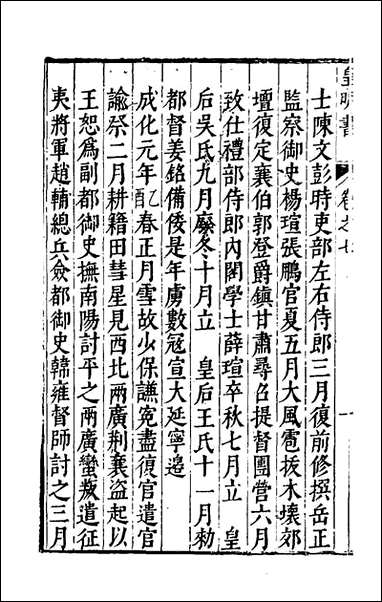 皇明書 卷之七 一
士陳文彭時吏部左右侍郎三月復前修撰岳正
監察御史楊瑄張鵬官夏五月大風雹拔木壞郊
壇復定襄伯郭登爵鎮甘肅尋召提督團營六月
致仕禮部侍郎內閣學士薛瑄卒秋七月立 皇
后吳氏九月廢冬十月立 皇后王氏十一月勑
都督姜銘備倭是年虜數寇宣大延寧邊
成化元年乙酉春正月雪故少保謙冤盡復官遣官
諭祭二月耕籍田彗星見西北兩廣荊襄盜起以
王恕為副都御史撫南陽討平之兩廣蠻叛遣征
夷將軍趙輔總兵僉都御史韓雍督師討之三月